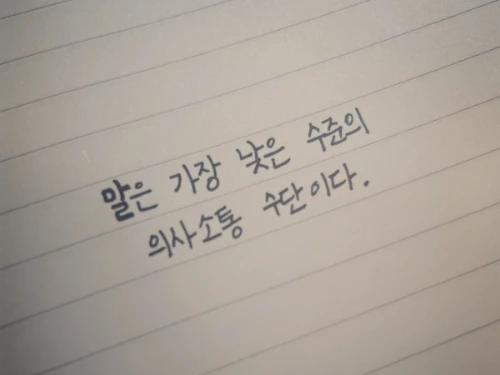 말은 가장 낮은 수준의
의사소통 수단이다.